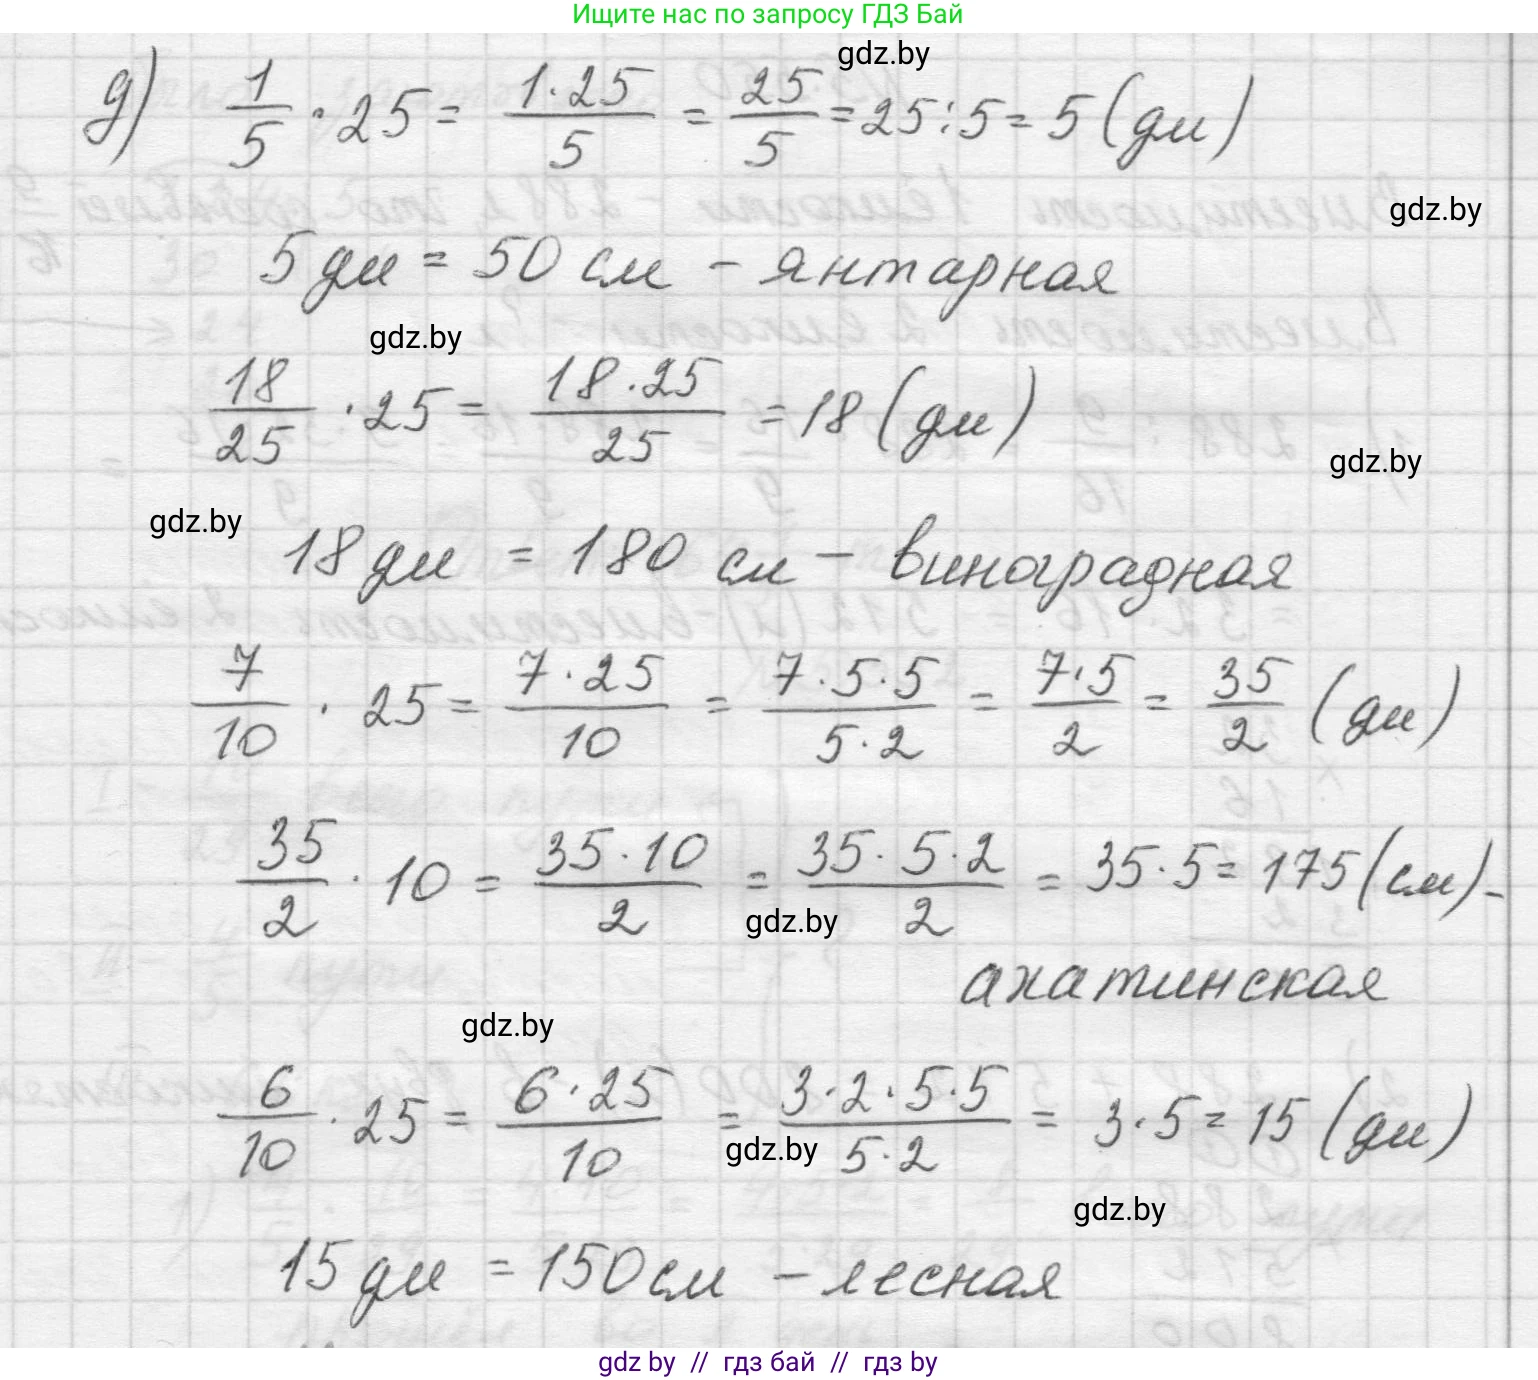 Ищите нас по запросу ГДЗ Бай
gdz.by
д) 1/5 · 25 = 1·25/5 = 25/5 = 25:5 = 5 (дм)
gdz.by
5 дм = 50 см – янтарная
gdz.by
18/25 · 25 = 18·25/25 = 18 (дм)
gdz.by
gdz.by
18 дм = 180 см – виноградная
7/10 · 25 = 7·25/10 = 7·5·5/5·2 = 7·5/2 = 35/2 (дм)
35/2 · 10 = 35·10/2 = 35·5·2/2 = 35·5 = 175 (см) –
gdz.by
ахатинская
gdz.by
6/10 · 25 = 6·25/10 = 3·2·5·5/5·2 = 3·5 = 15 (дм)
gdz.by
gdz.by
15 дм = 150 см – лесная
gdz by // гдз бай // гдз by